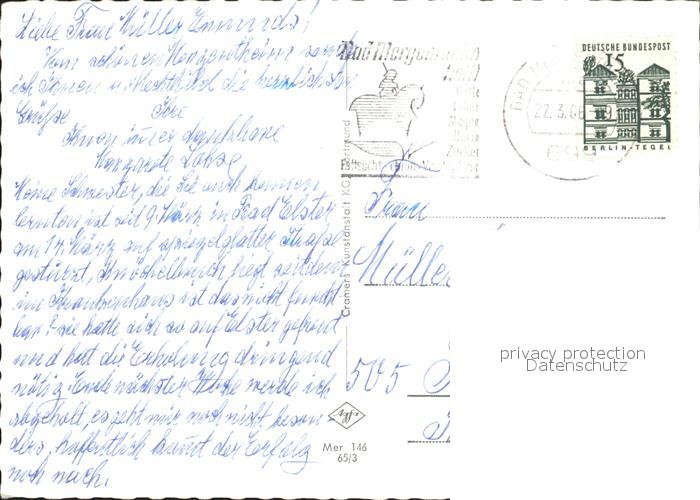 Liebe Frau Müller
Vom schönen Mergentheim
ich Ihnen u. Mechthild die herzlichsten
Grüße Ihre
Ihnen immer
Margarete
Meine Schwester, die Sie auch kennen
lernten ist seit 9. März in Bad Elster
am 17. März auf spiegelglatter Straße
gestürzt, Knöchelbruch, liegt seitdem
im Krankenhaus ist das nicht furcht
bar? Sie hatte sich so auf Elster gefreut
und hat die Erholung dringend
nötig. Ende nächster Woche werde ich
abgeholt, es geht mir noch nicht beson-
ders, hoffentlich kommt der Erfolg
noch nach.
Bad Mergentheim
Fettsucht
Zucker
BAD
22.3.66
699
DEUTSCHE BUNDESPOST
15
BERLIN-TEGEL
Cramers Kunstanstalt KG Dortmund
Frau
Müller
505
Agfa
Mer 146
65/3
privacy protection
Datenschutz